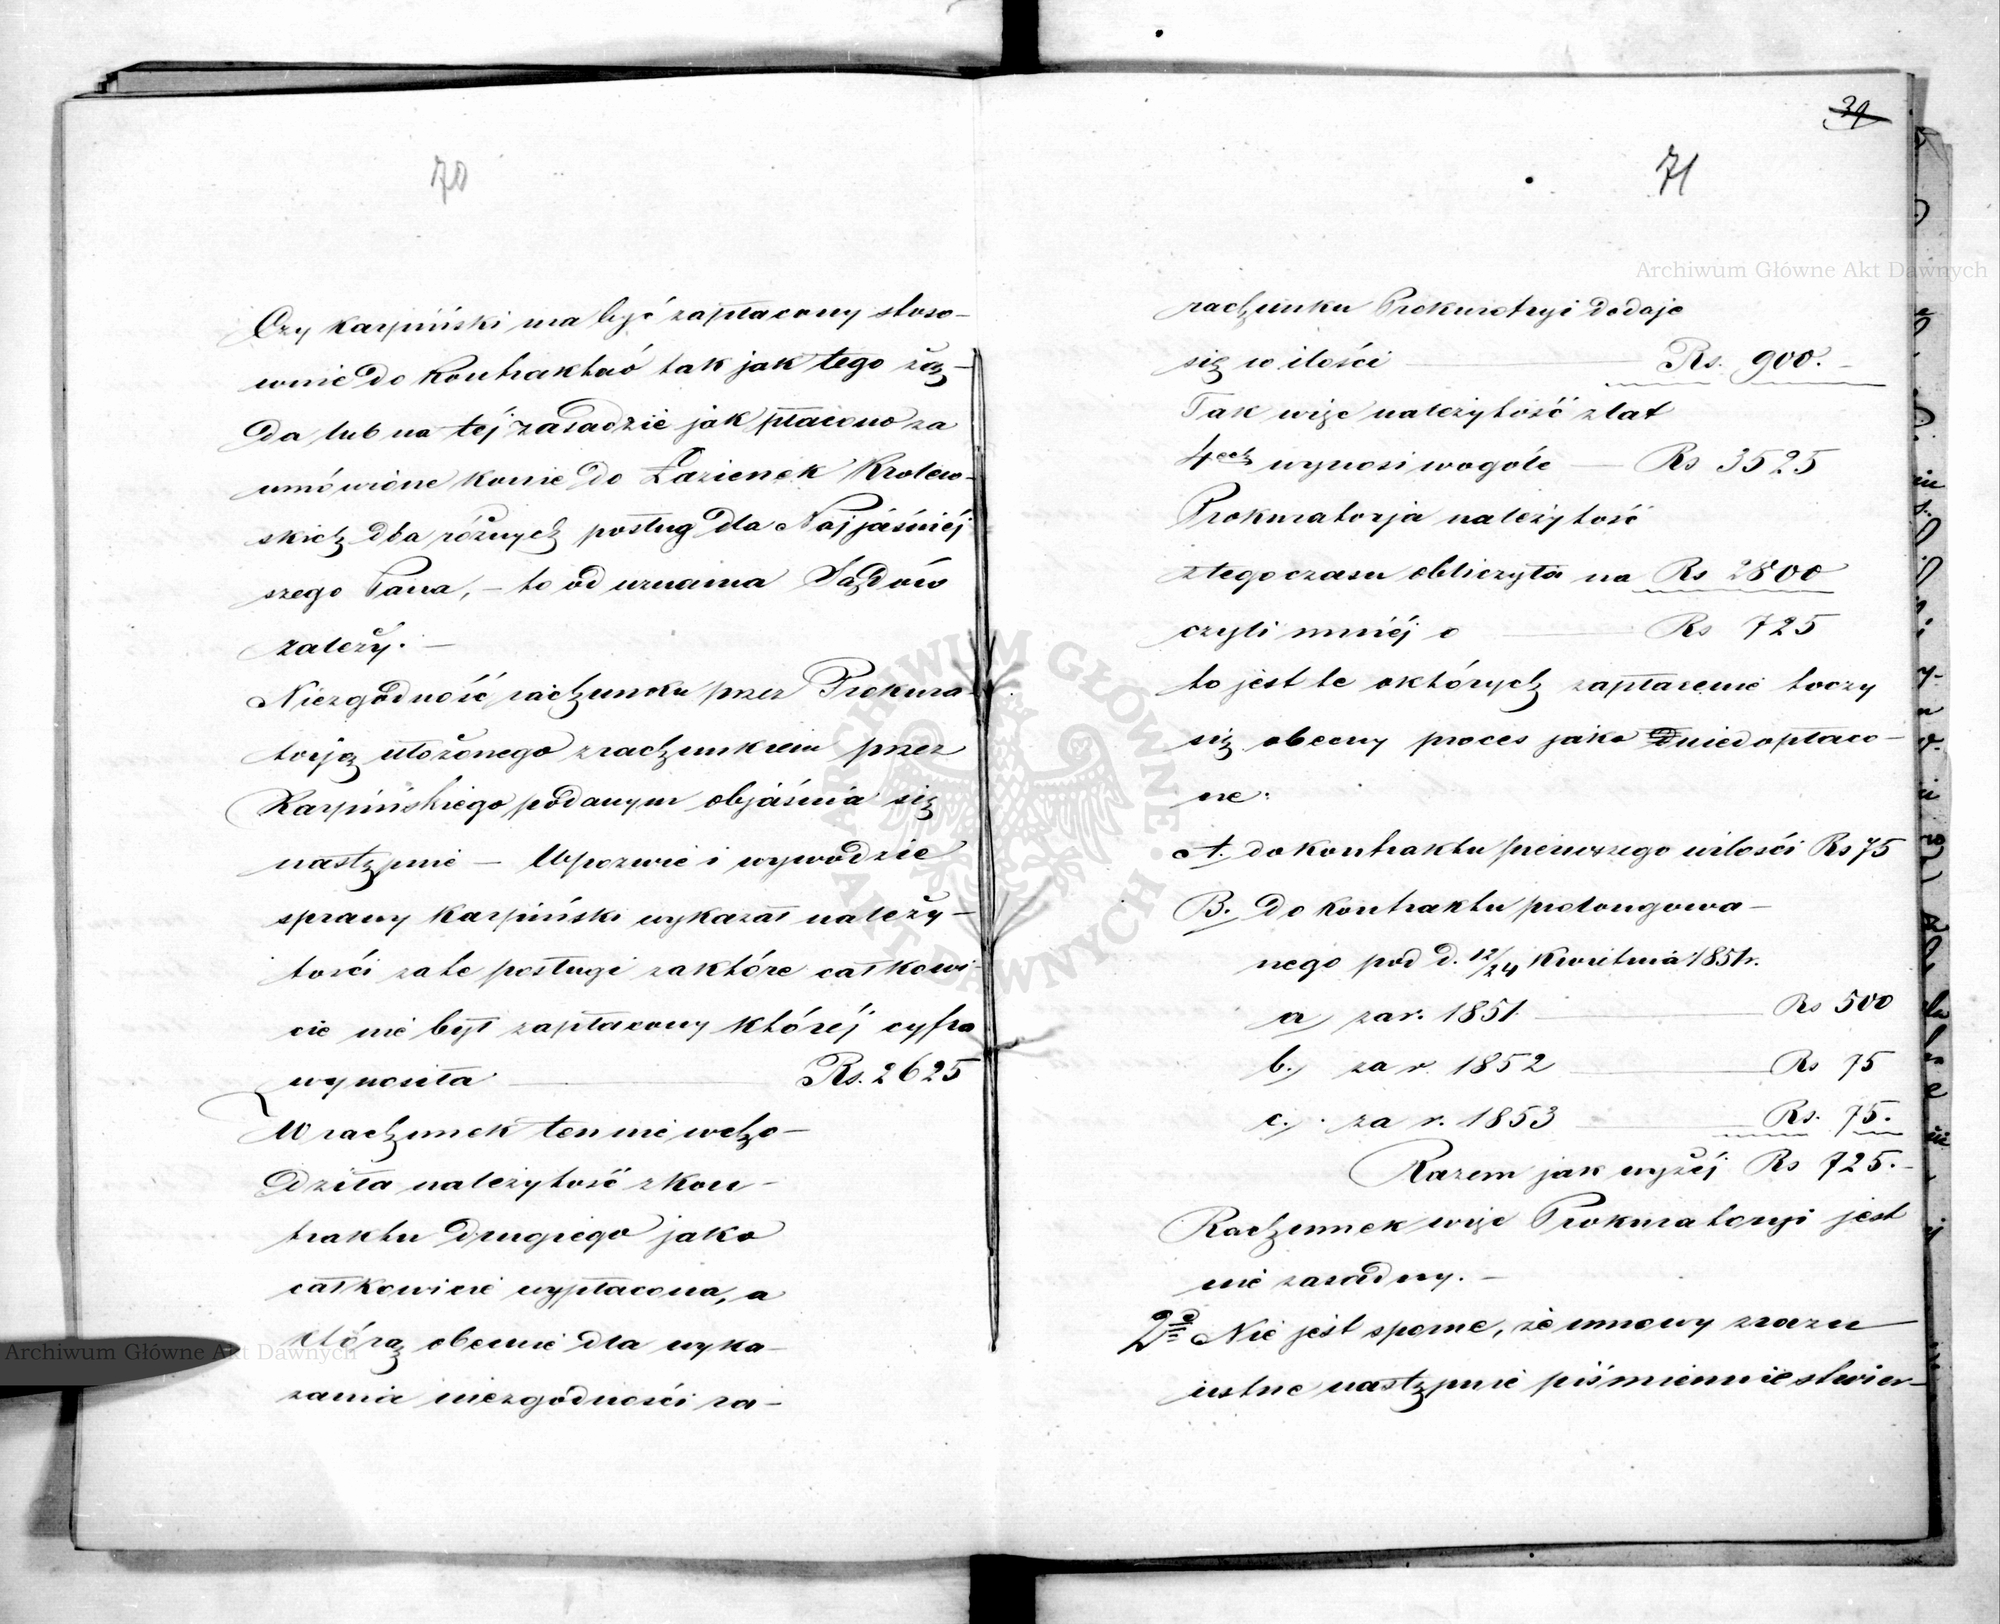 70
Czy Karpiński ma być zapłacony stoso-
wnie do Kontraktów tak jak tego żą-
da lub na tej zasadzie jak płacono za
umówione konie do Łazienek Królew-
skich dla różnych posług dla Najjaśniéj
szego Pana, – to od uznania Sądów
zależy. –
Niezgodność rachunku przez Prokura-
torję ułożonego z rachunkiem przez
Karpińskiego podanym objaśnia się
następnie – W pozwie i wywodzie
sprawy Karpiński wykazał należy-
tości za te posługi za które całkowi-
cie nie był zapłacony któréj cyfra
wynosiła Rs. 2625
W rachunek ten nie wcho-
dziła należytość z kon-
traktu drugiego jako
całkowicie wypłacona, a
którą obecnie dla wyka-
zania niezgodności ra-
39
71
rachunku Prokuratoryi dodaje
się w ilości Rs. 900. –
Tak więc należytość z lat
4ech wynosi wogóle – Rs 3525
Prokuratorja należytość
z tego czasu obliczyła na Rs 2800
czyli mniéj o Rs 725
to jest te o których zapłacenie toczy
się obecny proces jako niedopłaco-
ne.
A. do kontraktu pierwszego w ilości Rs 75
B. do kontraktu prolongowa-
nego pod d. 12/24 Kwietnia 1851 r.
a) za r. 1851. Rs 500
b.) za r. 1852 Rs 75
c.) za r. 1853 Rs. 75.
Razem jak wyżéj Rs 725. –
Rachunek więc Prokuratoryi jest
nie zasadny. –
2do Nie jest sporne, że umowy zrazu
ustne następnie piśmiennie stwier-
Archiwum Główne Akt Dawnych
Archiwum Główne Akt Dawnych
ARCHIWUM GŁÓWNE AKT DAWNYCH